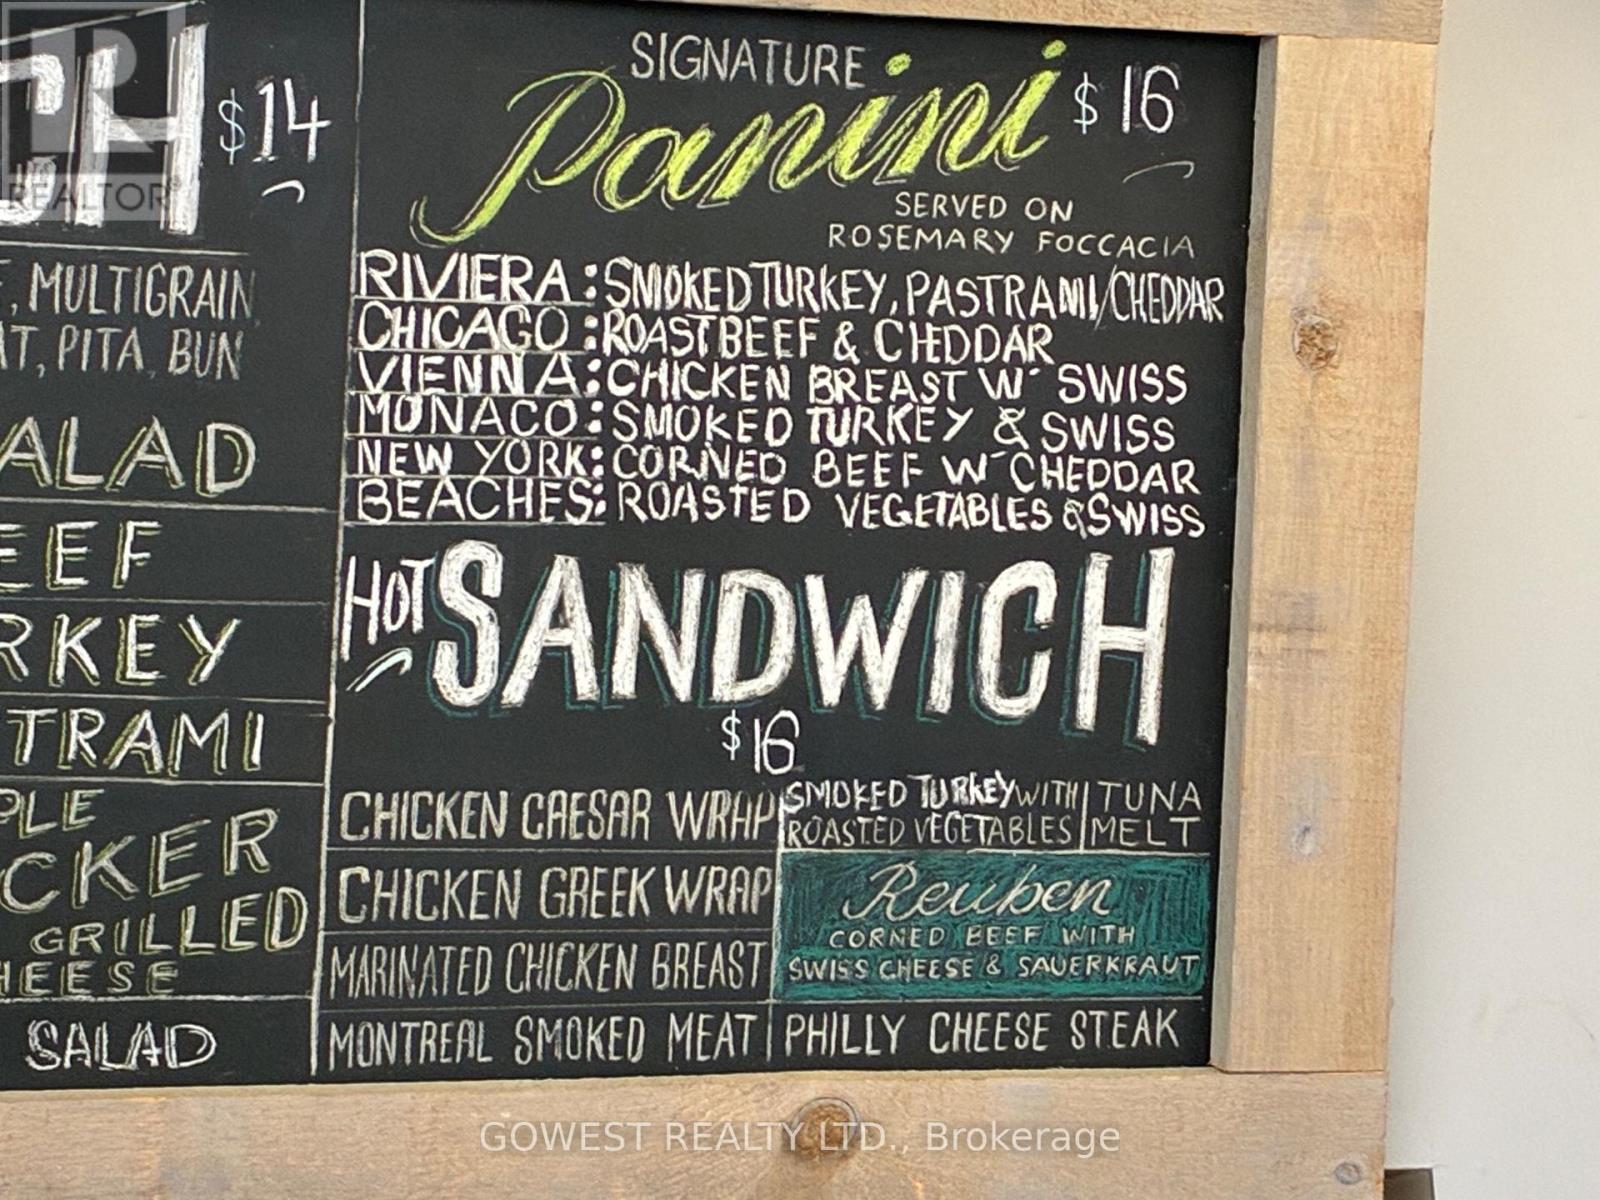 $14
MULTIGRAIN
PITA, BUN
SALAD
GRILLED
SALAD
SIGNATURE
Panini $16
SERVED ON
ROSEMARY FOCCACIA
RIVIERA: SMOKED TURKEY, PASTRAMI/CHEDDAR
CHICAGO: ROAST BEEF & CHEDDAR
VIENNA: CHICKEN BREAST W' SWISS
MONACO: SMOKED TURKEY & SWISS
NEW YORK: CORNED BEEF W' CHEDDAR
BEACHES: ROASTED VEGETABLES & SWISS
HOT SANDWICH
$16
CHICKEN CAESAR WRAP
CHICKEN GREEK WRAP
MARINATED CHICKEN BREAST
MONTREAL SMOKED MEAT
SMOKED TURKEY WITH
ROASTED VEGETABLES
TUNA
MELT
Reuben
CORNED BEEF WITH
SWISS CHEESE & SAUERKRAUT
PHILLY CHEESE STEAK
REALTOR®
GOWEST REALTY LTD., Brokerage